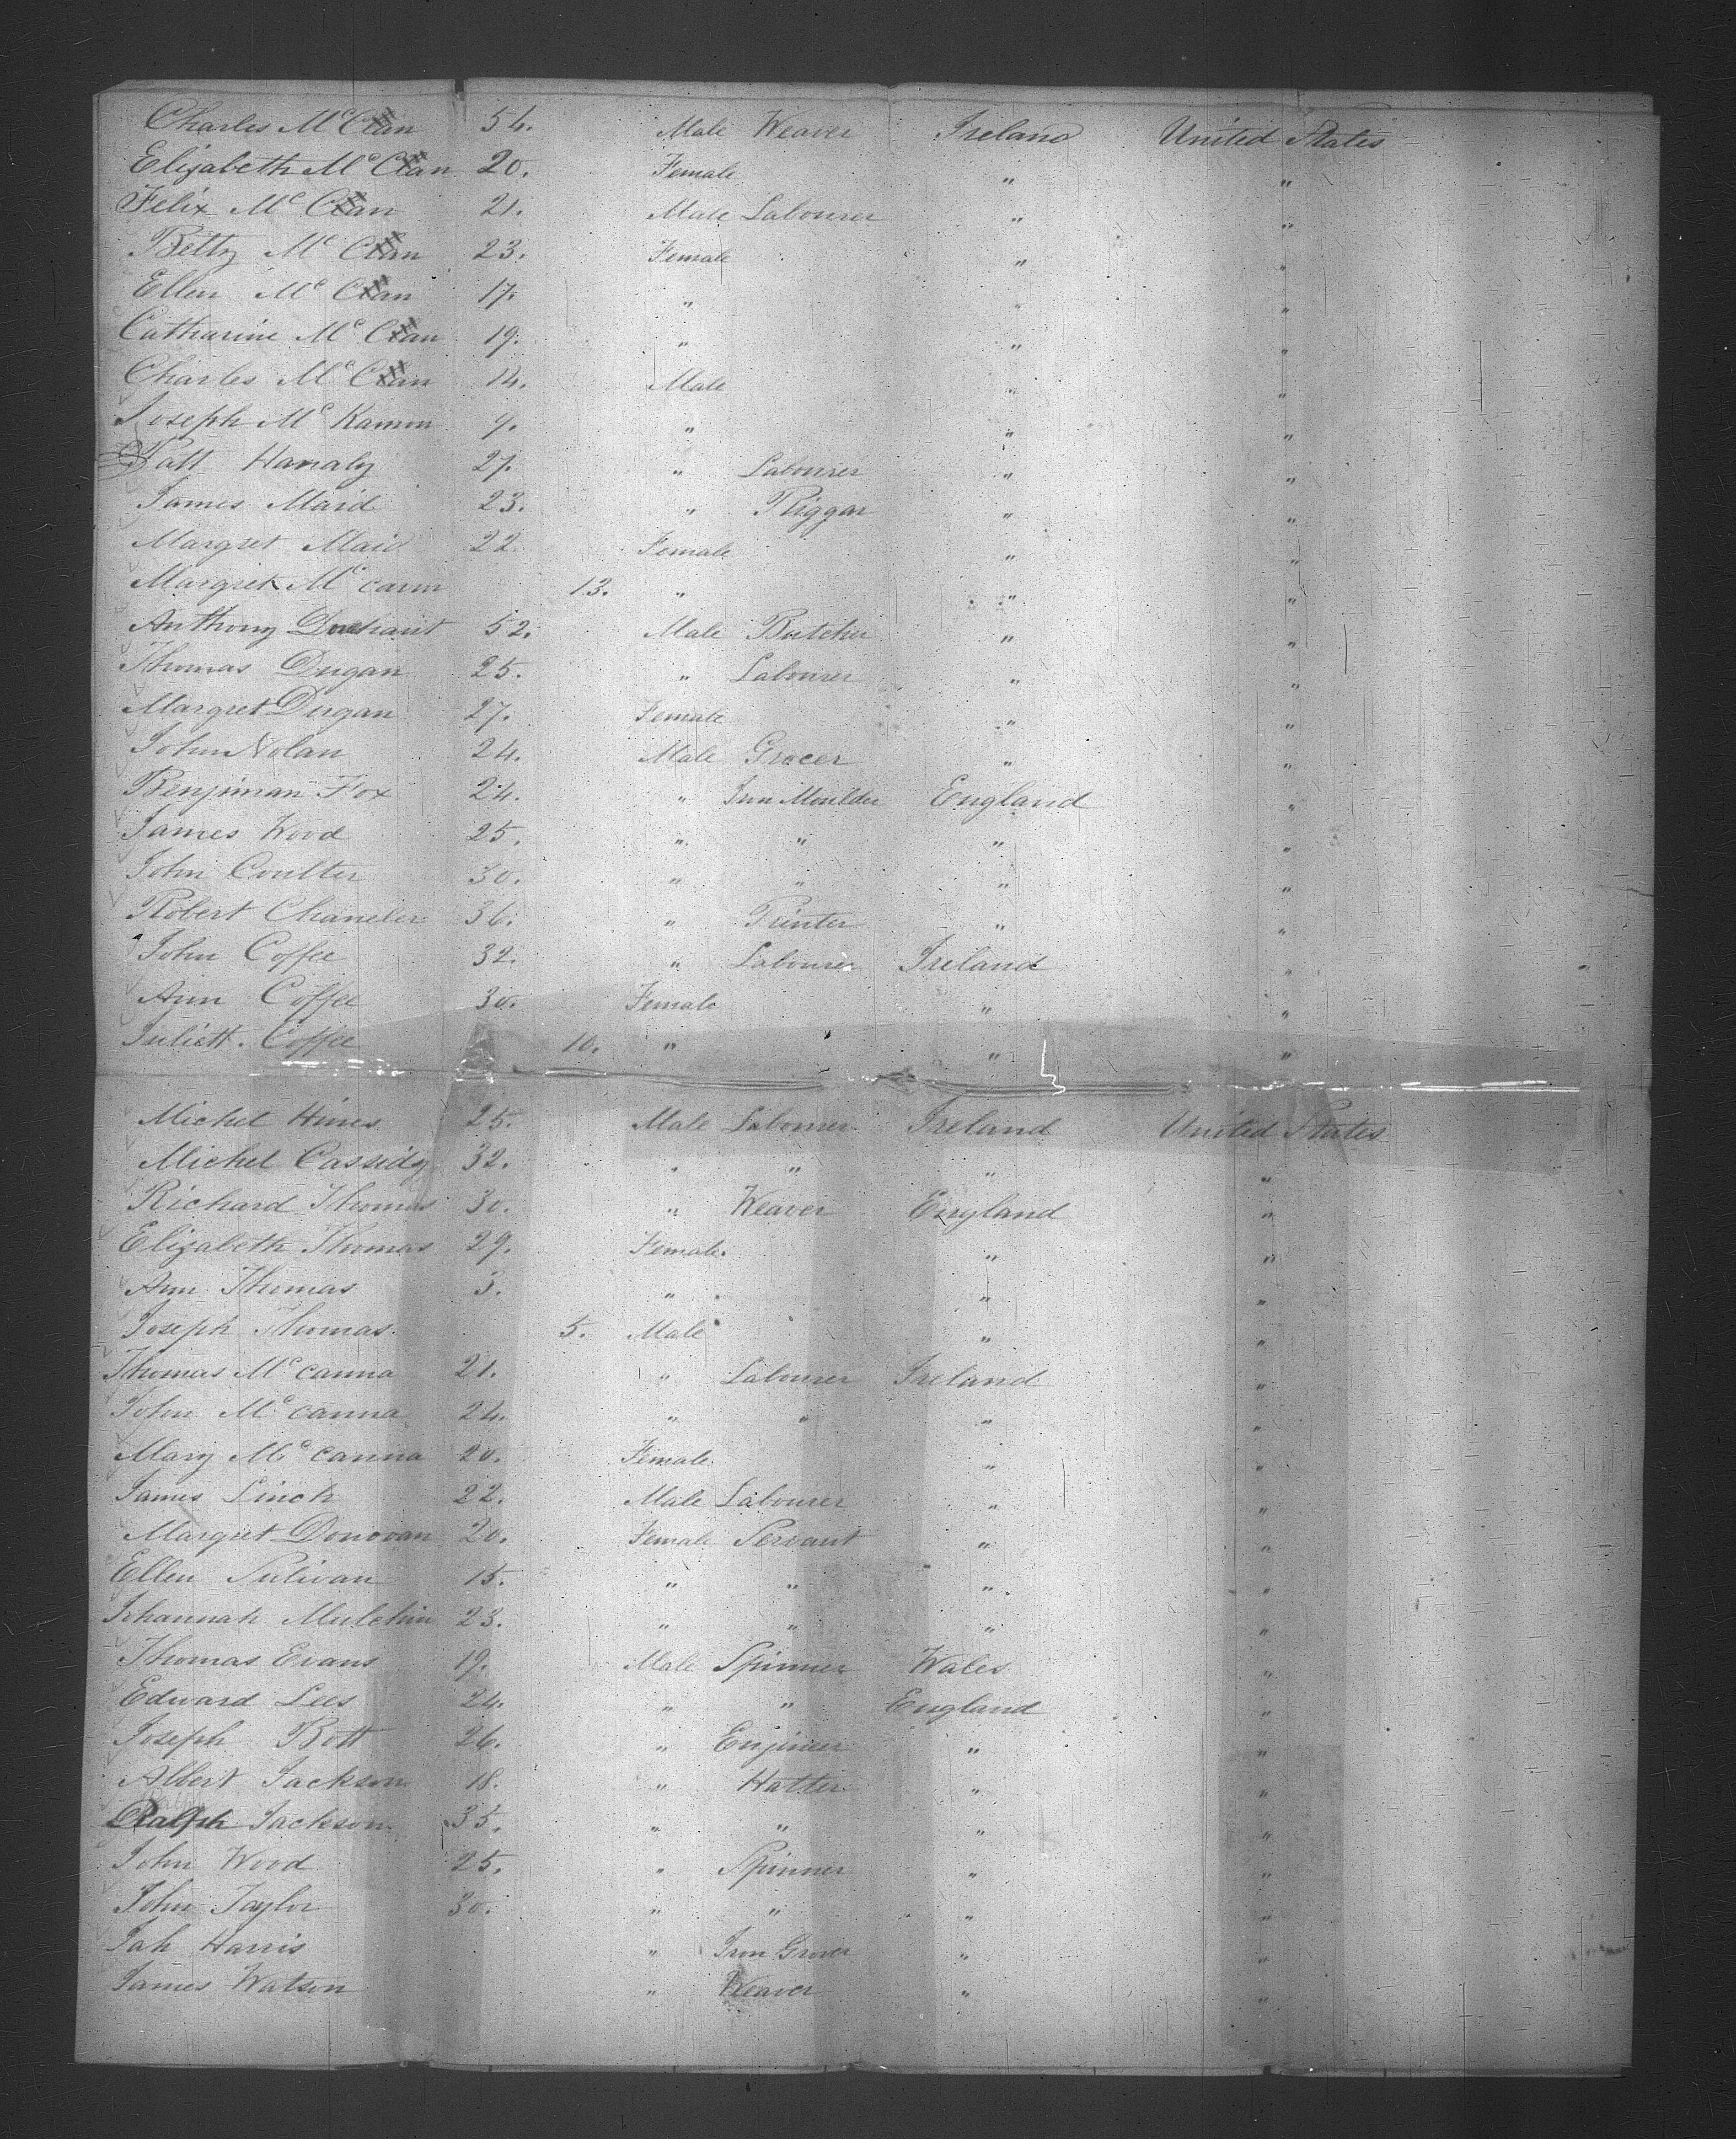 Charles Mc Clan 54. Male Weaver Ireland United States
Elizabeth Mc Clan 20. Female " "
Felix Mc Clan 21. Male Labourer " "
Betty Mc Clan 23. Female " "
Ellen Mc Clan 17. " " "
Catharine Mc Clan 19. " " "
Charles Mc Clan 14. Male " "
Joseph Mc Kamon 9. " " "
Patt Hanaly 27. " Labourer " "
James Maid 23. " Riggar " "
Margret Maid 22. Female " "
Margret Mc carm 13. " " "
Anthony 52. Male Butcher " "
Thomas Dugan 25. " Labourer " "
Margret Dugan 27. Female " "
John Nolan 24. Male Grocer " "
Benjiman Fox 24. " Iron Moulder England "
James Wood 25. " " " "
John Coulter 30. " " " "
Robert Chaneler 36. " Printer " "
John Coffee 32. " Labourer Ireland "
Ann Coffee 30. Female " "
Juliett. Coffee 10. " " "
Michel Hines 25. Male Labourer Ireland United States
Michel Cassidy 32. " " " "
Richard Thomas 30. " Weaver England "
Elizabeth Thomas 29. Female. " "
Ann Thomas 3. " " "
Joseph Thomas. 5. Male " "
Thomas Mc canna 21. " Labourer Ireland "
John Mc canna 24. " " " "
Mary Mc canna 20. Female. " "
James Linch 22. Male Labourer " "
Margret Donovan 20. Female Servant " "
Ellen Sulivan 15. " " " "
Johannah Mulchin 23. " " " "
Thomas Evans 19. Male Spinner Wales "
Edward Lees 24. " " England "
Joseph Bott 26. " Enjineer " "
Albert Jackson 18. " Hatter " "
Ralph Jackson 35. " " " "
John Wood 25. " Spinner " "
John Taylor 30. " " " "
Jah Harris " Iron Grover " "
James Watson " Weaver " "